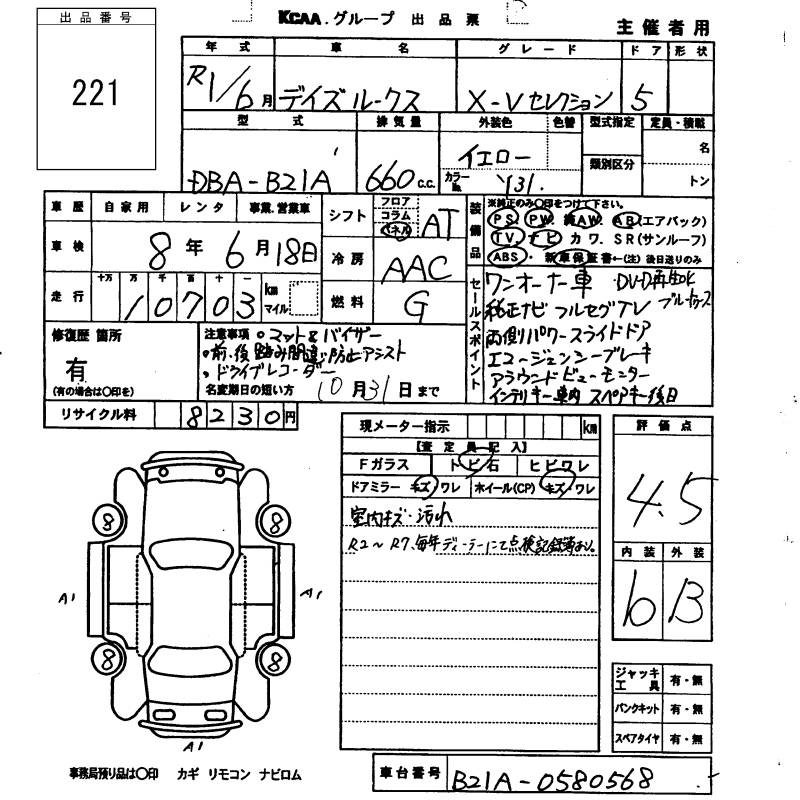 出品番号
221
KCAA.グループ 出品票
主催者用
年式 車名 グレード ドア 形状
R1/6月 デイズルークス X-Vセレクション 5
型式 排気量 外装色 色替 型式指定 定員・積載
DBA-B21A 660c.c. イエロー 類別区分 名
カラーNo. Y31. トン
車歴 自家用 レンタ 事業.営業車
車検 8年6月18日
走行 十万 万 千 百 十 一
10703 km マイル
シフト フロア コラム パネル AT
冷房 AAC
燃料 G
装備品 ※純正のみ○印をつけて下さい。
PS PW 純AW. AB(エアバック)
TV ナビ カワ. SR(サンルーフ)
ABS・新車保証書←(注)後日送りのみ
セールスポイント
ワンオーナー車 DVD再生OK
純正ナビ フルセグTV ブルートゥース
両側パワースライドドア
エマージェンシーブレーキ
アラウンドビューモニター
インテリキー車内 スペアキー後日
修復歴 箇所
有
(有の場合は○印を)
注意事項 マット&バイザー
前、後踏み間違い防止アシスト
ドライブレコーダー
名変期日の短い方 10月31日まで
リサイクル料 8230円
現メーター指示 km
【査定員記入】
Fガラス トビ石 ヒビワレ
ドアミラー キズ ワレ ホイール(CP) キズ・ワレ
室内キズ・汚れ
R2～R7、毎年ディーラーにて点検記録簿あり。
評価点
4.5
内装 外装
6 B
8 8
A1 A1
8 8
A1
ジャッキ工具 有・無
パンクキット 有・無
スペアタイヤ 有・無
事務局預り品は○印 カギ リモコン ナビロム
車台番号 B21A-0580568